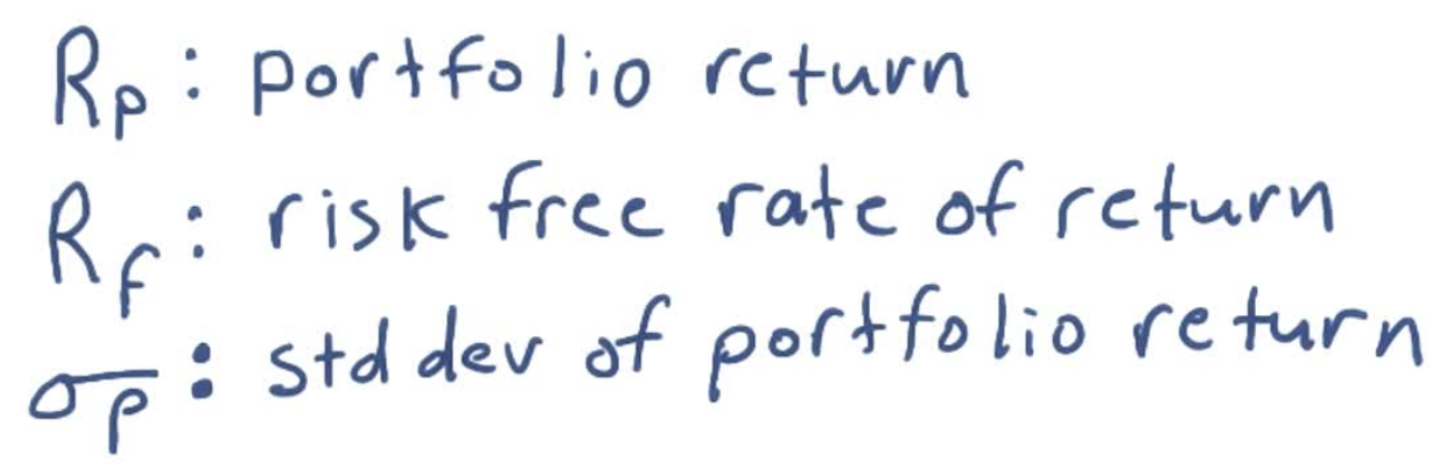 Rp: portfolio return
Rf: risk free rate of return
σp: std dev of portfolio return